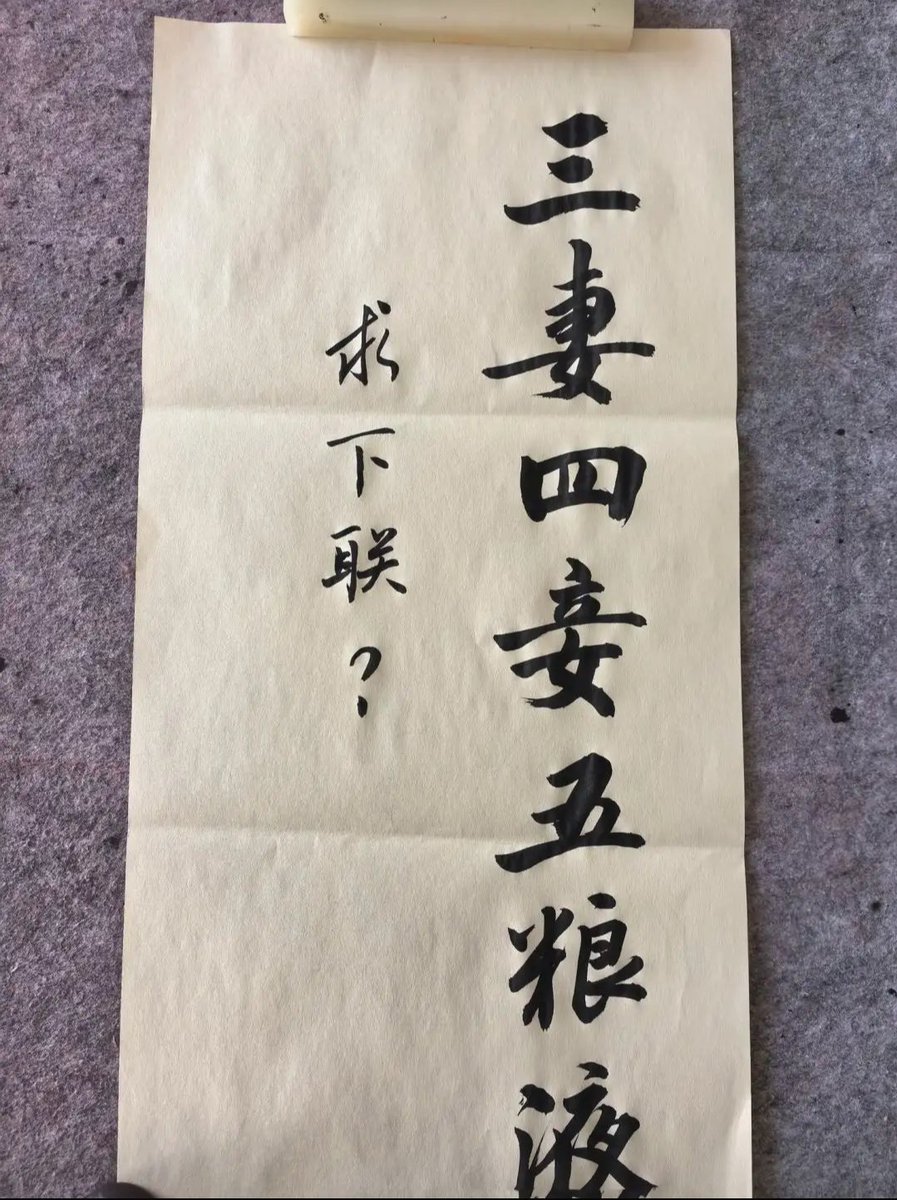 三妻四妾五粮液
求下联？